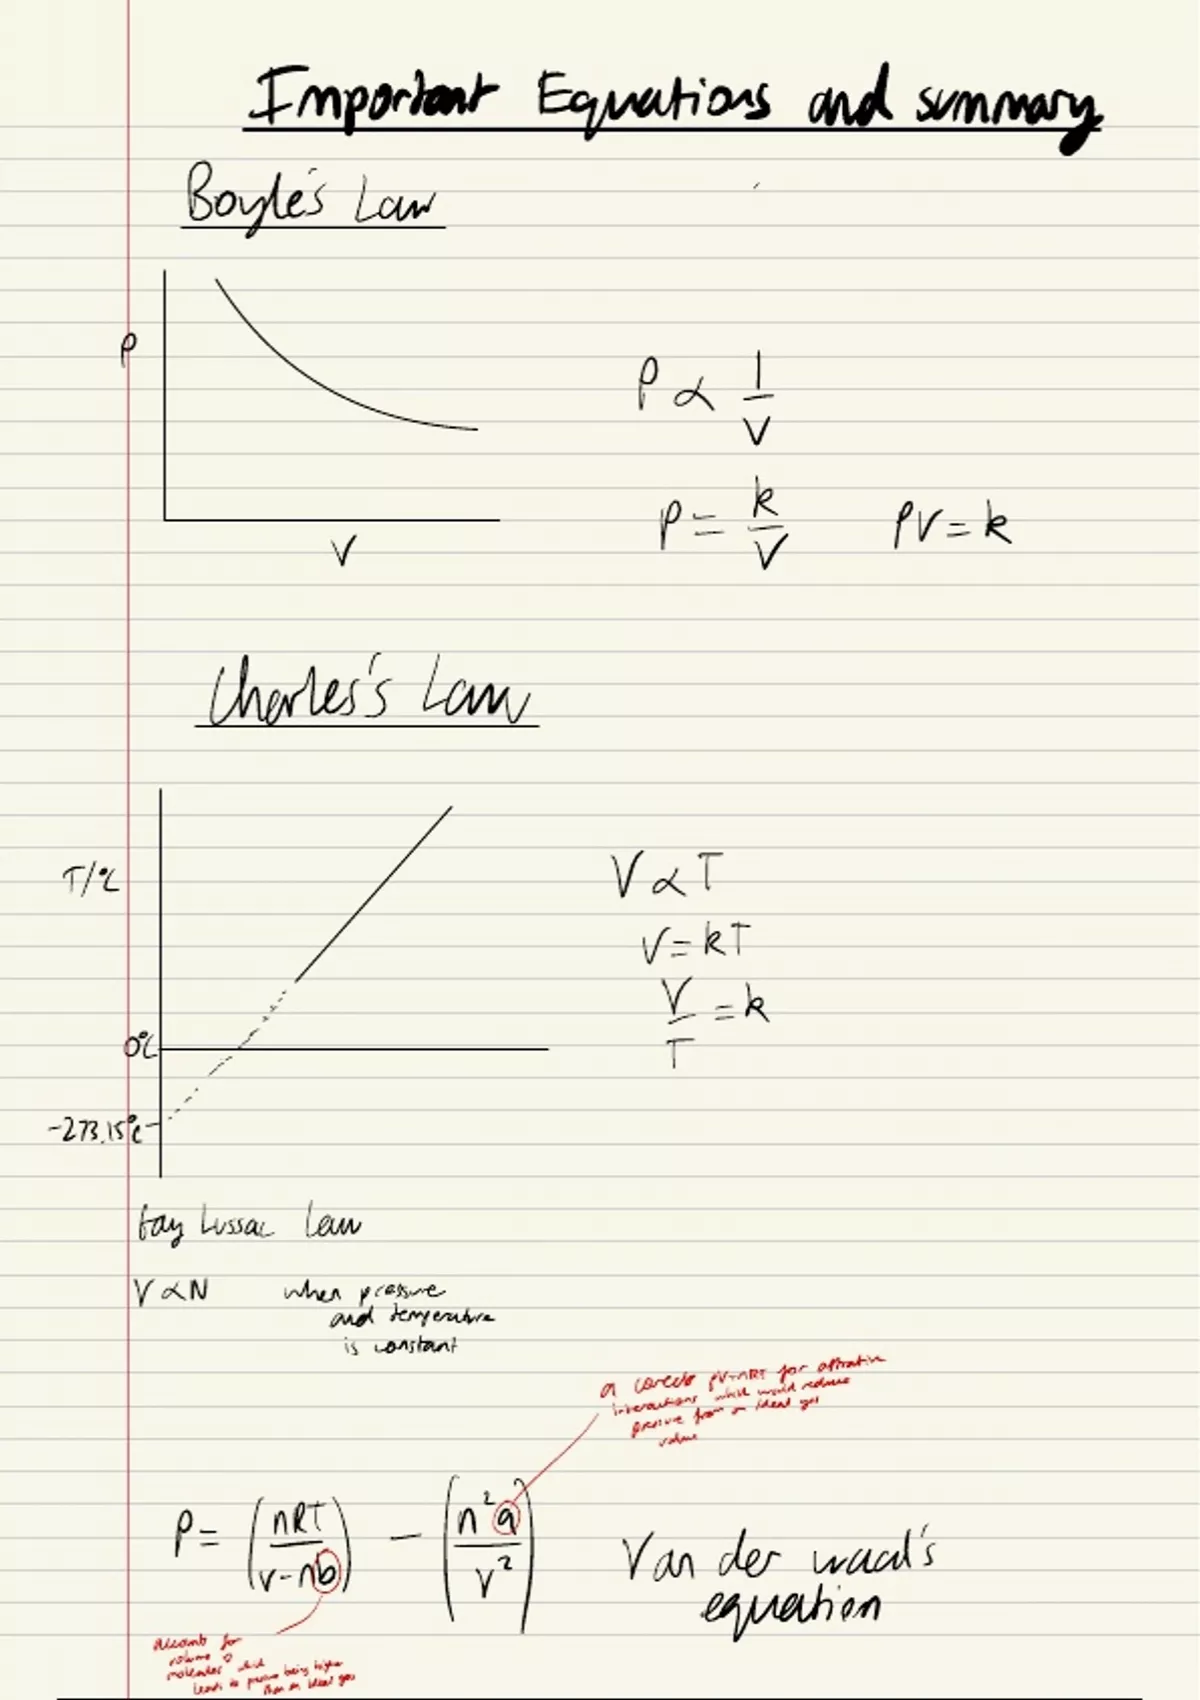 Important Equations and summary
Boyle's Law
P
P ∝ 1/V
P = k/V PV = k
V
Charles's Law
T/°C
V ∝ T
V = kT
V/T = k
0°C
-273.15°C
Gay Lussac Law
V ∝ N when pressure
and temperature
is constant
a corrects PV=nRT for attractive
interactions which would reduce
pressure from an ideal gas
value
P = (nRT/V-nb) - (n²a/V²)
Van der waal's
equation
accounts for
volume of
molecules which
leads to pressure being higher
than an ideal gas